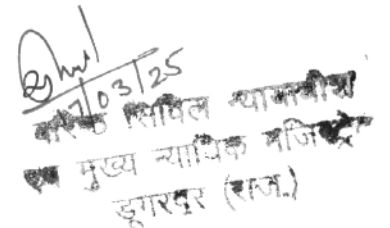 7/03/25
वरिष्ठ सिविल न्यायाधीश
एवं मुख्य न्यायिक मजिस्ट्रेट
डूंगरपुर (राज.)